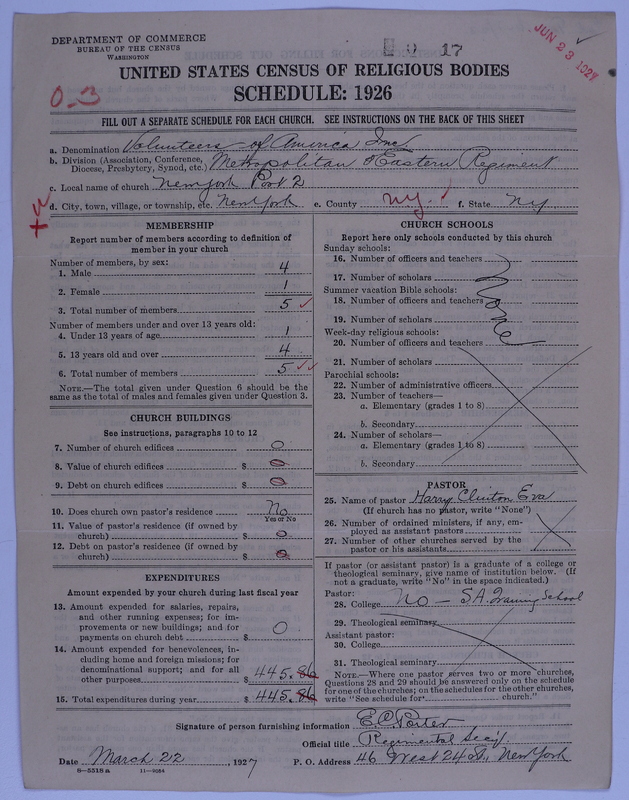 DEPARTMENT OF COMMERCE
BUREAU OF THE CENSUS
WASHINGTON
17
JUN 23 1927
UNITED STATES CENSUS OF RELIGIOUS BODIES
SCHEDULE: 1926
0-3
FILL OUT A SEPARATE SCHEDULE FOR EACH CHURCH. SEE INSTRUCTIONS ON THE BACK OF THIS SHEET
a. Denomination Volunteers of America Inc
b. Division (Association, Conference, Diocese, Presbytery, Synod, etc.) Metropolitan & Eastern Regiment
c. Local name of church New York Post 2
d. City, town, village, or township, etc. New York e. County N.Y. f. State NY
MEMBERSHIP
Report number of members according to definition of
member in your church
Number of members, by sex:
1. Male 4
2. Female 1
3. Total number of members 5
Number of members under and over 13 years old:
4. Under 13 years of age 1
5. 13 years old and over 4
6. Total number of members 5
NOTE.—The total given under Question 6 should be the
same as the total of males and females given under Question 3.
CHURCH BUILDINGS
See instructions, paragraphs 10 to 12
7. Number of church edifices 0
8. Value of church edifices $ 0
9. Debt on church edifices $ 0
10. Does church own pastor's residence No
Yes or No
11. Value of pastor's residence (if owned by
church) $ 0
12. Debt on pastor's residence (if owned by
church) $ 0
EXPENDITURES
Amount expended by your church during last fiscal year
13. Amount expended for salaries, repairs,
and other running expenses; for im-
provements or new buildings; and for
payments on church debt $ 0
14. Amount expended for benevolences, in-
cluding home and foreign missions; for
denominational support; and for all
other purposes $ 445.86
15. Total expenditures during year $ 445.86
CHURCH SCHOOLS
Report here only schools conducted by this church
Sunday schools:
16. Number of officers and teachers
17. Number of scholars
Summer vacation Bible schools:
18. Number of officers and teachers
None
19. Number of scholars
Week-day religious schools:
20. Number of officers and teachers
21. Number of scholars
Parochial schools:
22. Number of administrative officers
23. Number of teachers—
a. Elementary (grades 1 to 8)
b. Secondary
24. Number of scholars—
a. Elementary (grades 1 to 8)
b. Secondary
PASTOR
25. Name of pastor Harry Clinton Eva
(If church has no pastor, write "None")
26. Number of ordained ministers, if any, em-
ployed as assistant pastors
27. Number of other churches served by the
pastor or his assistants
If pastor (or assistant pastor) is a graduate of a college or
theological seminary, give name of institution below. (If
not a graduate, write "No" in the space indicated.)
Pastor:
28. College No — S.A. Training School
29. Theological seminary
Assistant pastor:
30. College
31. Theological seminary
NOTE.—Where one pastor serves two or more churches,
Questions 28 and 29 should be answered only on the schedule
for one of the churches; on the schedules for the other churches,
write "See schedule for church."
Signature of person furnishing information E.C. Porter
Official title Regimental Secy.
Date March 22, 1927 P. O. Address 46 West 24 St., New York
8—5518 a 11—9084